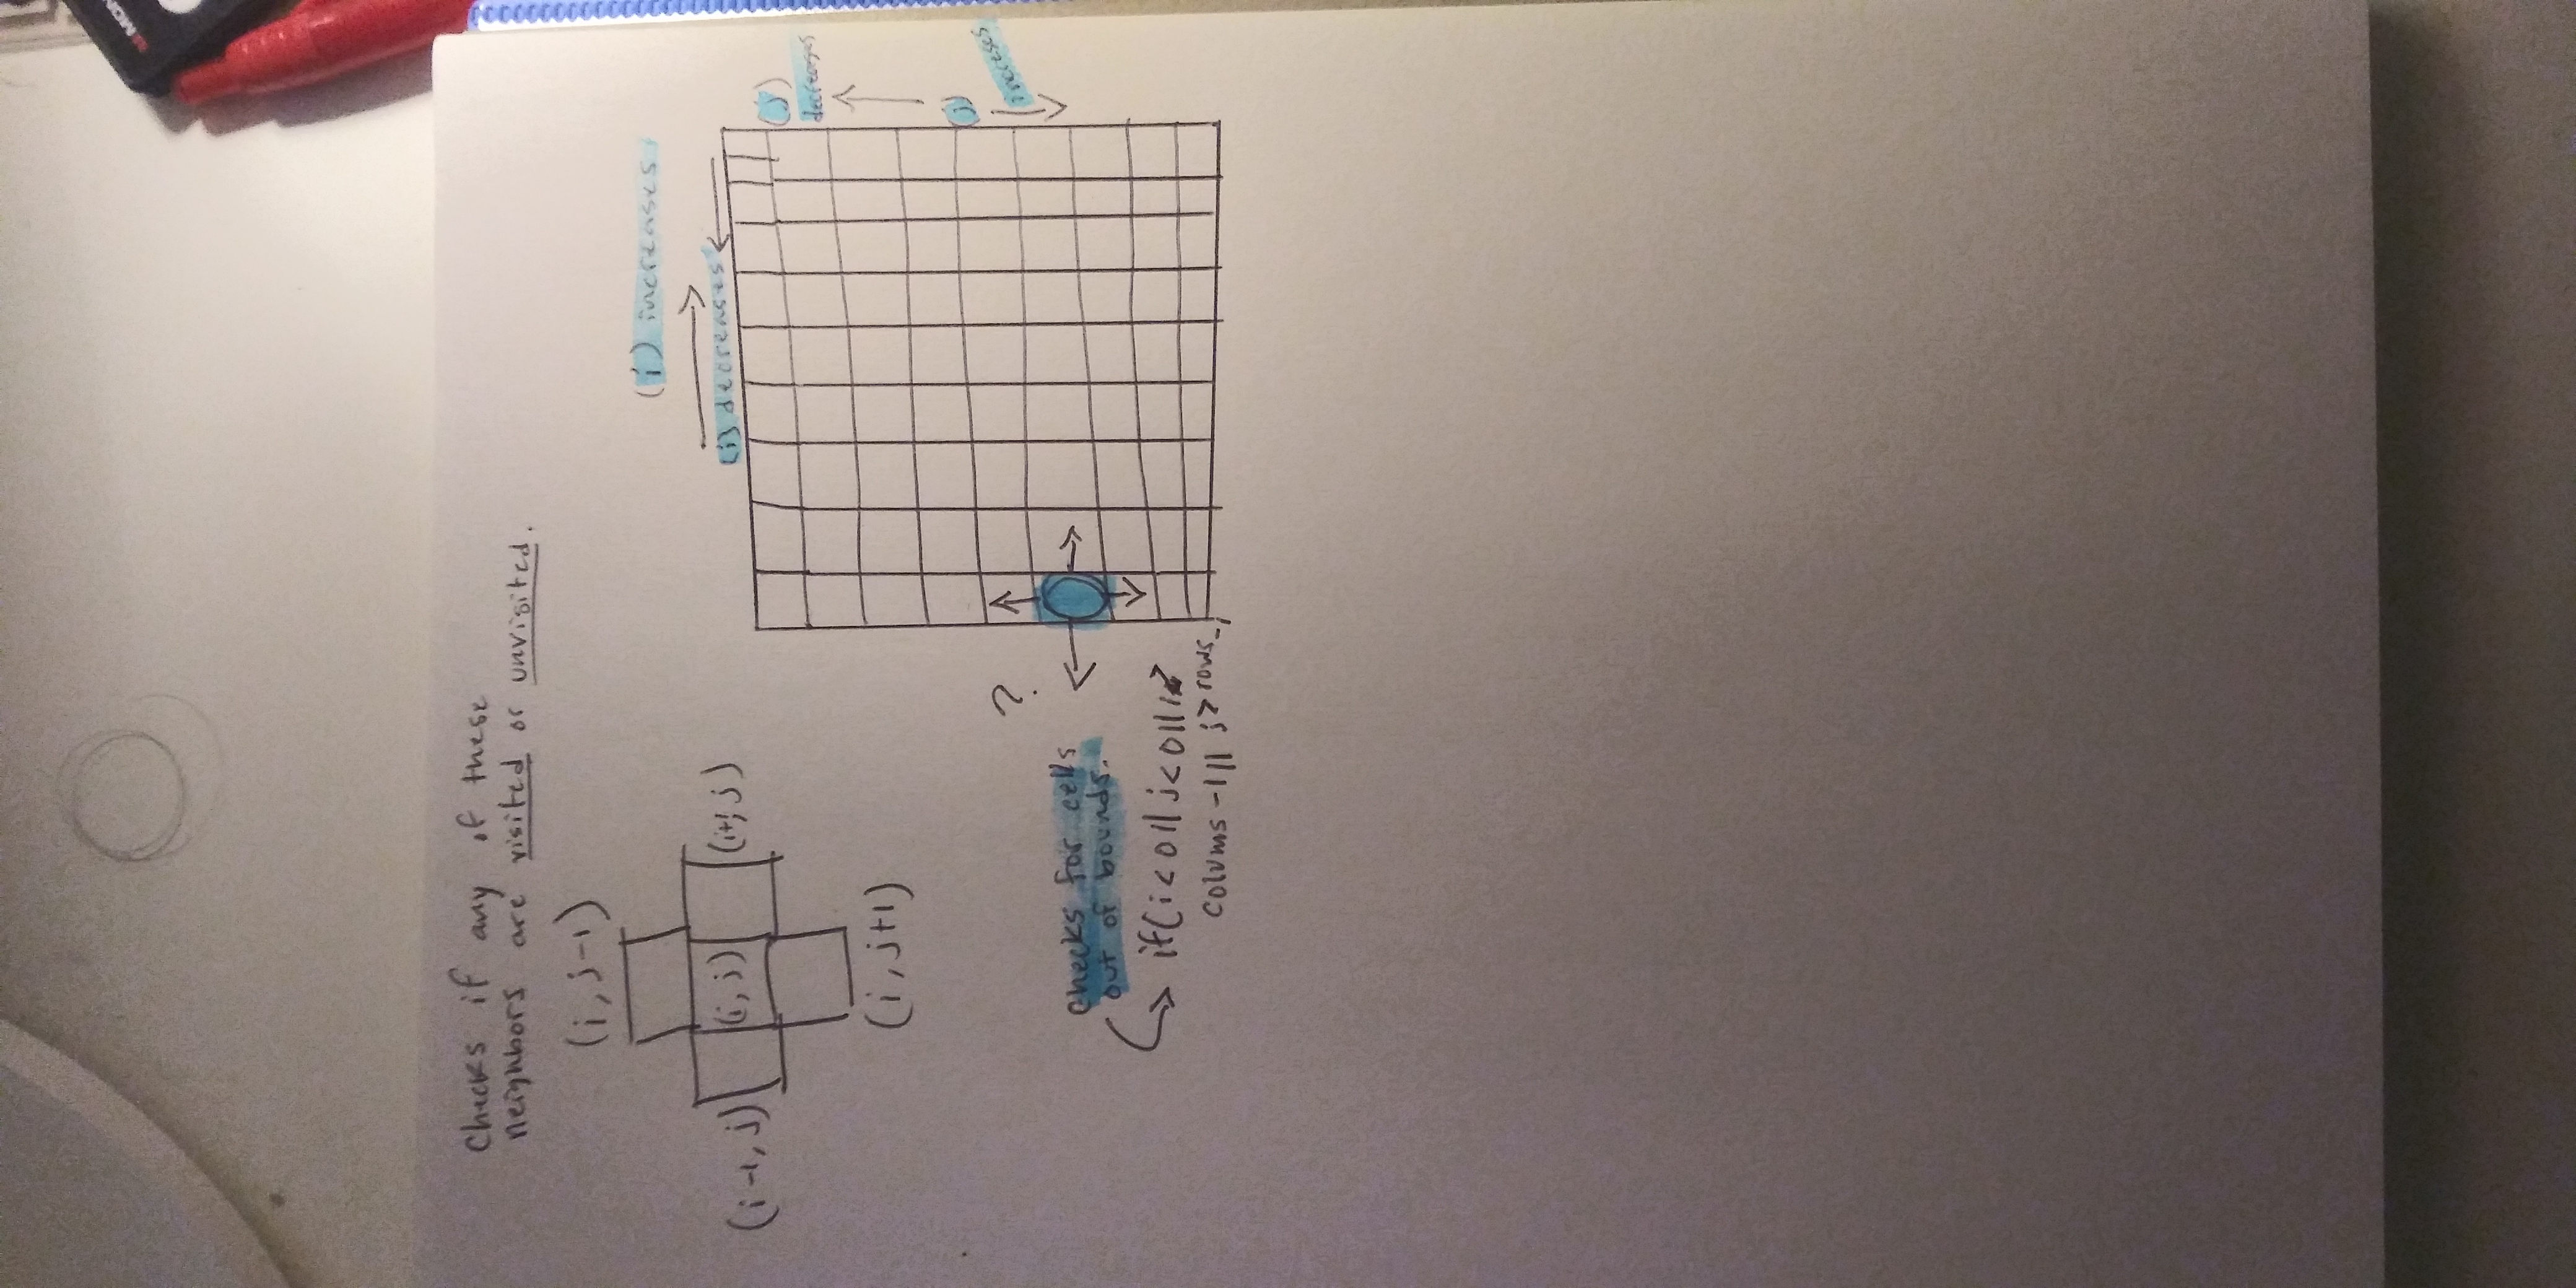 Checks if any of these
neighbors are visited or unvisited.
(i, j-1)
(i-1, j)
(i, j)
(i+1, j)
(i, j+1)
(i) increases
(i) decreases
(j)
decreases
(j)
increses
?
checks for cells
out of bounds.
if(i<0||j<0||i>
colums -1|| j> rows-1